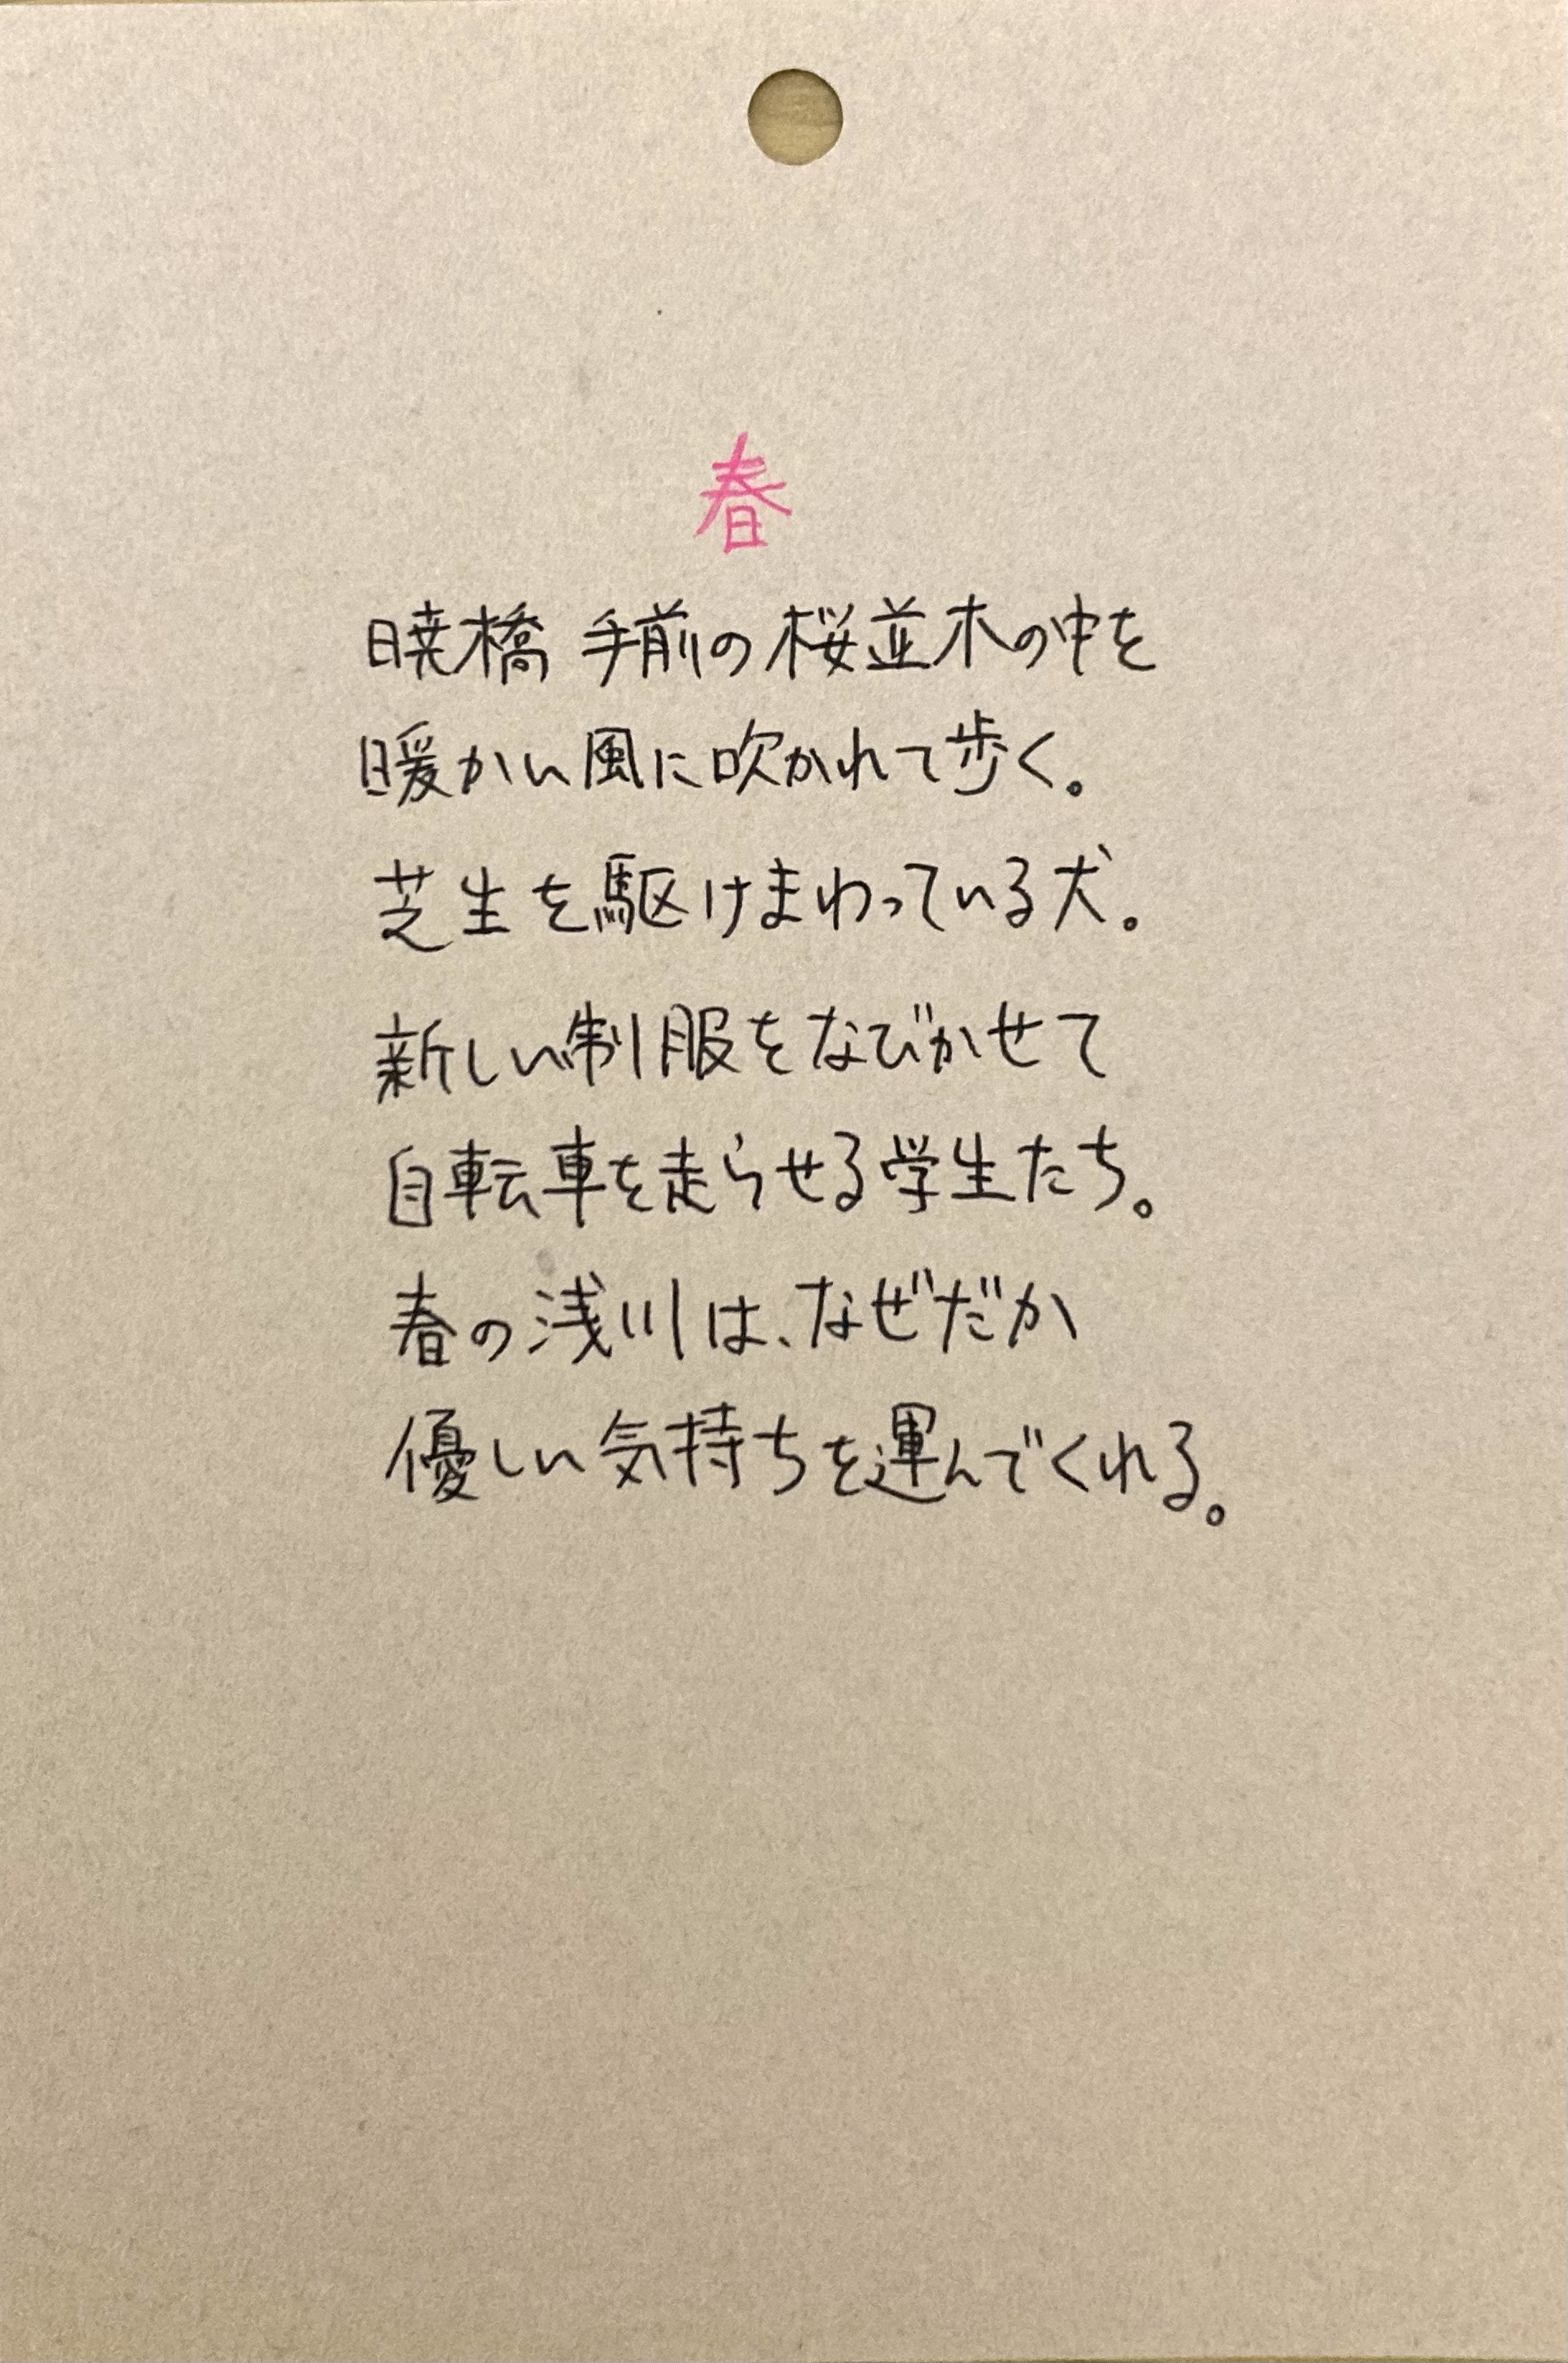 春
暁橋 手前の桜並木の中を
暖かい風に吹かれて歩く。
芝生を駆けまわっている犬。
新しい制服をなびかせて
自転車を走らせる学生たち。
春の浅川は、なぜだか
優しい気持ちを運んでくれる。